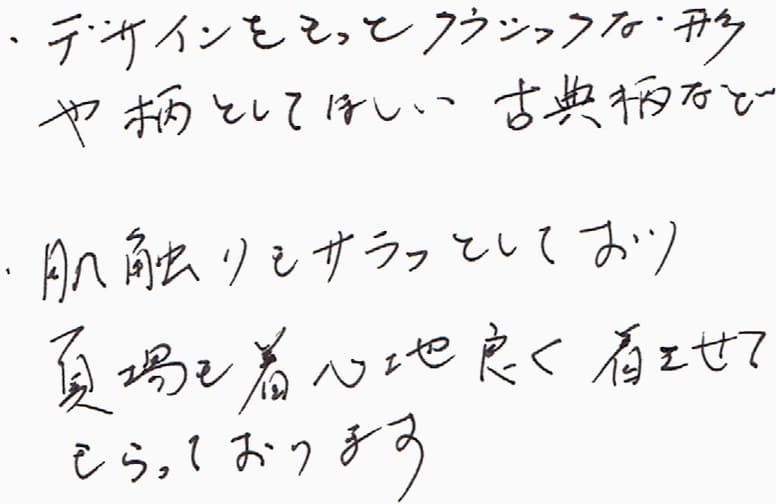 ・デザインをもっとクラシックな・形
や柄としてほしい 古典柄など
・肌触りもサラっとしており
夏場も着心地良く着させて
もらっております